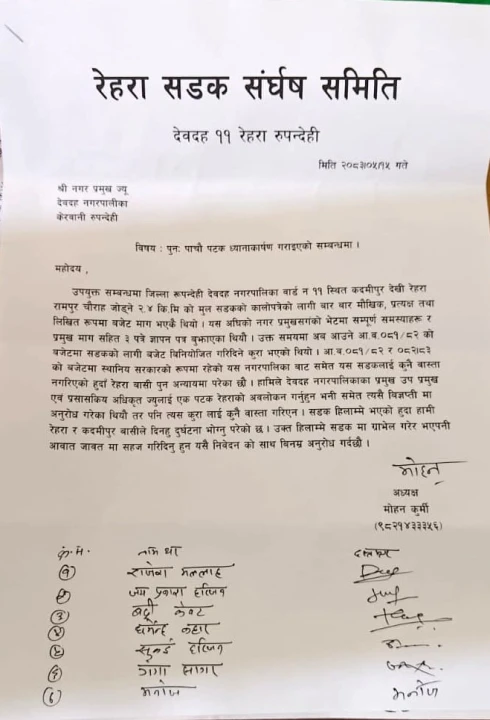 रेहरा सडक संर्घष समिति
देवदह ११ रेहरा रुपन्देही
मिति २०८३।०५।१५ गते
श्री नगर प्रमुख ज्यू
देवदह नगरपालीका
केरवानी रुपन्देही
विषय : पुनः पाचौ पटक ध्यानाकार्षण गराइएको सम्बन्धमा ।
महोदय ,
उपयुक्त सम्बन्धमा जिल्ला रूपन्देही देवदह नगरपालिका वार्ड न ११ स्थित कदमीपुर देखी रेहरा
रामपुर चौराह जोड्ने २.४ कि.मि को मुल सडकको कालोपत्रेको लागी बार बार मौखिक, प्रत्यक्ष तथा
लिखित रूपमा बजेट माग भएकै थियो । यस अघिको नगर प्रमुखसगंको भेटमा सम्पूर्ण समस्याहरू र
प्रमुख माग सहित ३ पत्रे ज्ञापन पत्र बुझाएका थियौ । उक्त समयमा अब आउने आ.व.०८१/८२ को
बजेटमा सडकको लागी बजेट बिनियोजित गरिदिने कुरा भएको थियो । आ.व.०८१/८२ र ०८२।८३
को बजेटमा स्थानिय सरकारको रूपमा रहेको यस नगरपालिका बाट समेत यस सडकलाई कुनै वास्ता
नगरिएको हुदाँ रेहरा बासी पुन अन्यायमा परेका छौ । हामिले देवदह नगरपालिकाका प्रमुख उप प्रमुख
एवं प्रसासकिय अधिकृत ज्युलाई एक पटक रेहराको अवलोकन गर्नुहुन भनी समेत त्यस विज्ञप्ती मा
अनुरोध गरेका थियौ तर पनि त्यस कुरा लाई कुनै वास्ता गरिएन । सडक हिलाम्मे भएको हुदा हामी
रेहरा र कदमीपुर बासीले दिनहु दुर्घटना भोग्नु परेको छ । उक्त हिलाम्मे सडक मा ग्राभेल गरेर भएपनी
आवात जावत मा सहज गरिदिनु हुन यसै निवेदन को साथ बिनम्र अनुरोध गर्दछौ ।
मोहन
अध्यक्ष
मोहन कुर्मी
(९८२१४३३३५६)
क्र.सं. नाम थर दस्तखत
(१) राजेश मल्लाह
(२) जय प्रकाश हरिजन
(३) बद्री केवट
(४) धर्मेन्द्र कहार
(५) हरिजन
(६) गंगा सागर
(७) मनोज मनोज